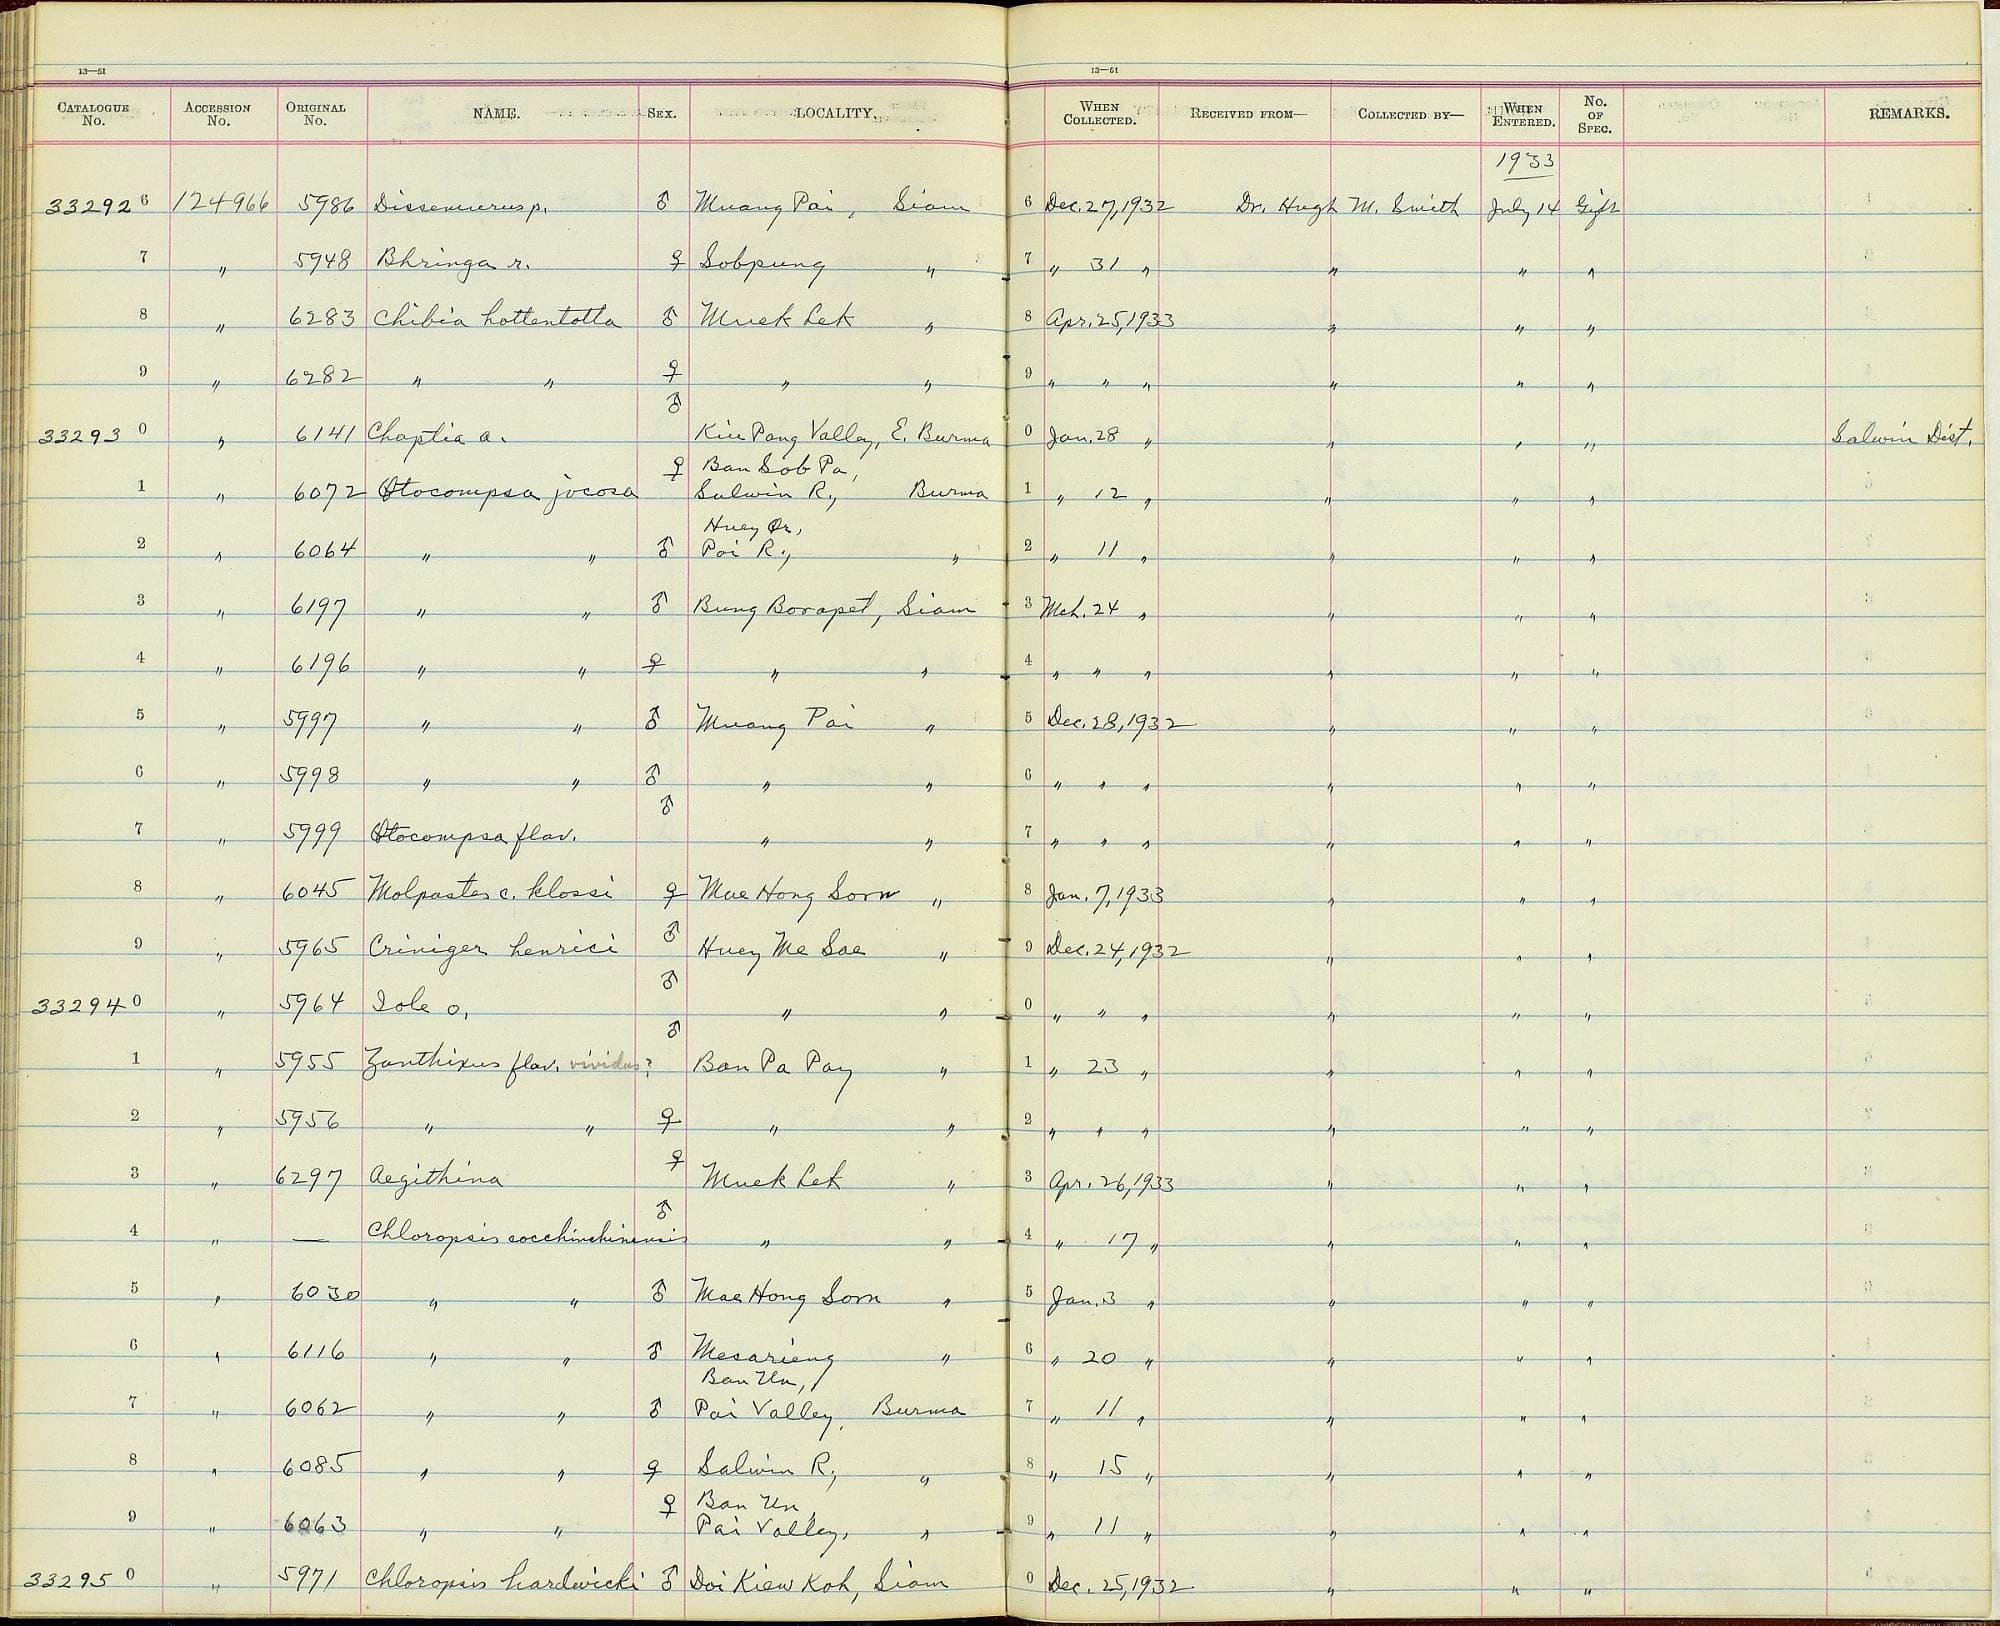 13—51 13—51
CATALOGUE No. ACCESSION No. ORIGINAL No. NAME. SEX. LOCALITY. WHEN COLLECTED. RECEIVED FROM— COLLECTED BY— WHEN ENTERED. No. OF SPEC. REMARKS.
1933
33292 6 124966 5986 Dissemurus p. ♂ Muang Pai, Siam 6 Dec. 27, 1932 Dr. Hugh M. Smith July 14 Gift
7 " 5948 Bhringa r. ♀ Sobpung " 7 " 31 " " " "
8 " 6283 Chibia hottentotta ♂ Muek Lek " 8 Apr. 25, 1933 " " "
9 " 6282 " " ♀ " " 9 " " " " " "
33293 0 " 6141 Chaptia a. ♂ Kiu Pang Valley, E. Burma 0 Jan. 28 " " " " Salwin Dist.
Ban Sob Pa,
1 " 6072 Otocompsa jocosa ♀ Salwin R., Burma 1 " 12 " " " "
Huey Or,
2 " 6064 " " ♂ Pai R., " 2 " 11 " " " "
3 " 6197 " " ♂ Bung Borapet, Siam 3 Mch. 24 " " " "
4 " 6196 " " ♀ " " 4 " " " " " "
5 " 5997 " " ♂ Muang Pai " 5 Dec. 28, 1932 " " "
6 " 5998 " " ♂ " " 6 " " " " " "
7 " 5999 Otocompsa flav. ♂ " " 7 " " " " " "
8 " 6045 Molpastes c. klossi ♀ Mae Hong Sorn " 8 Jan. 7, 1933 " " "
9 " 5965 Criniger henrici ♂ Huey Me Sae " 9 Dec. 24, 1932 " " "
33294 0 " 5964 Iole o. ♂ " " 0 " " " " " "
1 " 5955 Xanthixus flav. vividus? ♂ Ban Pa Pay " 1 " 23 " " " "
2 " 5956 " " ♀ " " 2 " " " " " "
3 " 6297 Aegithina ♀ Muek Lek " 3 Apr. 26, 1933 " " "
4 " — Chloropsis cocchinchinensis ♂ " " 4 " 17 " " " "
5 " 6030 " " ♂ Mae Hong Sorn " 5 Jan. 3 " " " "
6 " 6116 " " ♂ Mesarieng " 6 " 20 " " " "
Ban Un,
7 " 6062 " " ♂ Pai Valley, Burma 7 " 11 " " " "
8 " 6085 " " ♀ Salwin R., " 8 " 15 " " " "
Ban Un
9 " 6063 " " ♀ Pai Valley, " 9 " 11 " " " "
33295 0 " 5971 Chloropsis hardwicki ♂ Doi Kiew Koh, Siam 0 Dec. 25, 1932 " " "